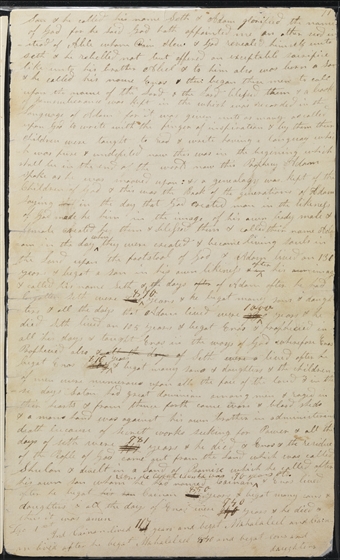 Son & he called his name Seth & Adam glorified the name
of God for he said God hath appointed me an other seed in
-stead of Able whom Cain slew & God revealed himself unto
Seth & he rebelled not but offered an exceptable sacrifice
like unto his brother Able & to him also was born a Son
& he called his name Enos & then began these men to call
upon the name of the Lord & the Lord blessed them & a book
of remembrance was kept in the which was recorded in the
language of Adam for it was given unto as many as called
upon God to write with the finger of inspiration & by them their
children were taught to read & write having a language which
was pure & undefiled now this was in the begining which
shall be in the end of the world now this Prophecy Adam
spake as he was moved upon & a genealogy was kept of the
Children of God & this was the Book of the generations of Adam
saying in the day that God created man in the likeness
of God made he him in the image of his own body male &
female created he them & blessed them & called their name Ad
am in the day they were created & became living souls in
the land upon the footstool of God & Adam lived an 130
years & begat a son in his own likeness after his own image
& called his name Seth & the days of Adam after he had
begotten Seth were years & he begat many sons & daugh
ters & all the days that Adam lived were years & he
died Seth lived an 105 years & begat Enos & prophesied in
all his days & taught Enos in the ways of God wherefore Enos
Prophesied also & Seth lived after he
begat Enos & begat many sons & daughters & the children
of men were numerous upon all the face of the land & in th
ose days Satan had great dominion among men & raged in
their hearts & from thence forth came wars & blood shed
& a mans hand was against his own brother in administering
death because of secret works seeking for Power & all the
days of Seth were years & he died & Enos & the residue
of the People of God came out from the land which was called
Shulon & dwelt in a land of Promise which he called after
his own son whom he had named Cainan & Enos lived
after he begat Cainan years & begat many sons &
daughters & all the days of Enos were years & he died &
years and begat Mahalaleel and
lived after he begat Mahalaleel and begat sons and
daughters